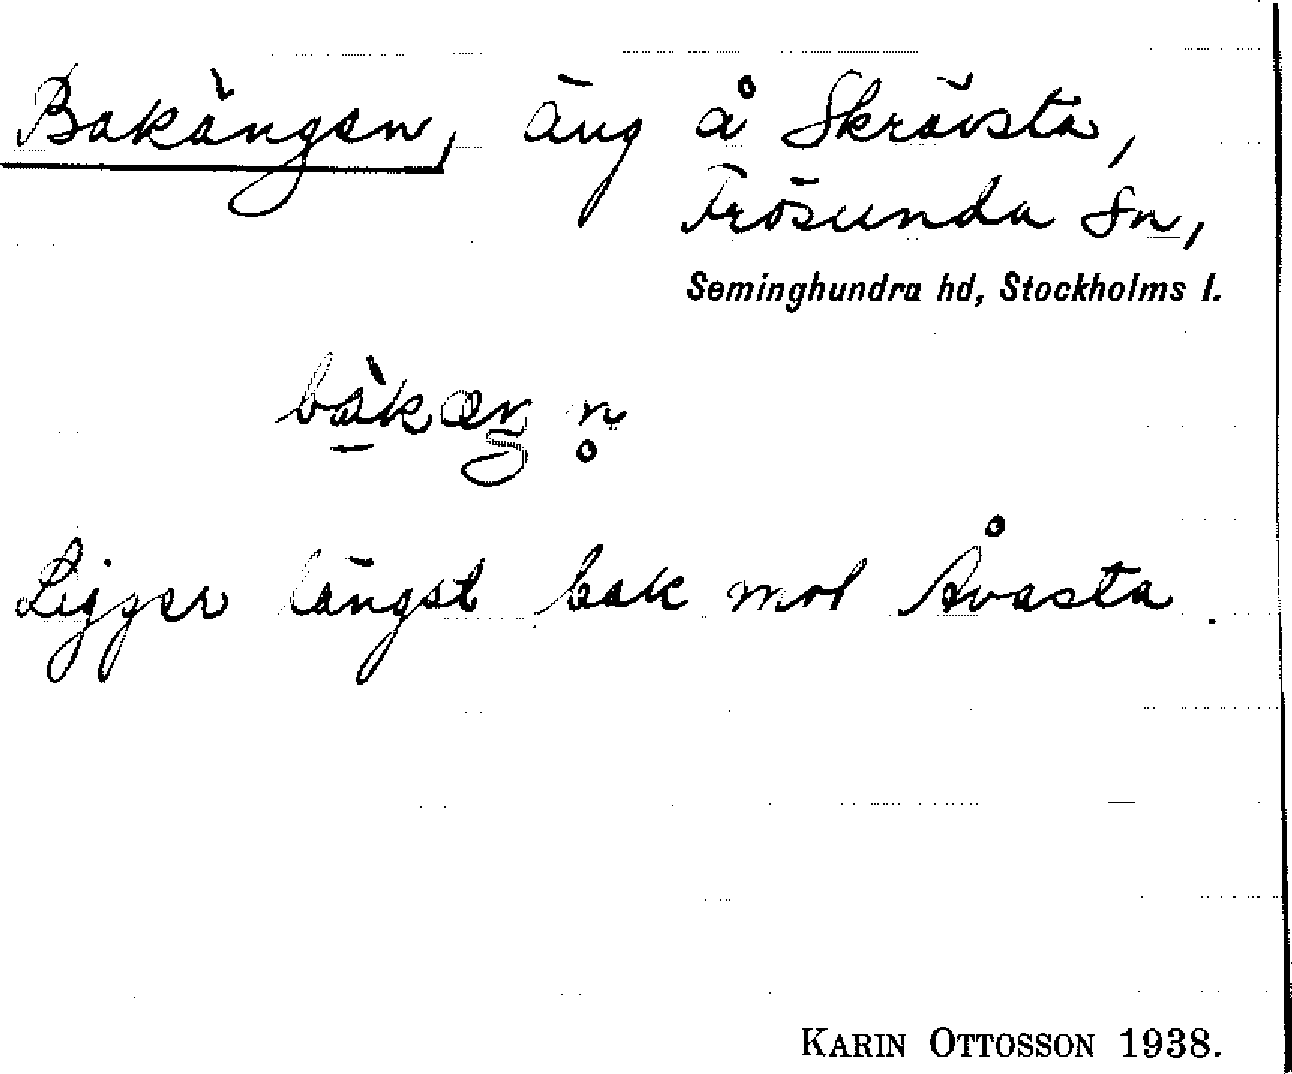 Bakängen, äng å Skrävsta,
Frösunda Sn,
Seminghundra hd, Stockholms l.
Ligger längst bak mot Åvasta.
KARIN OTTOSSON 1938.